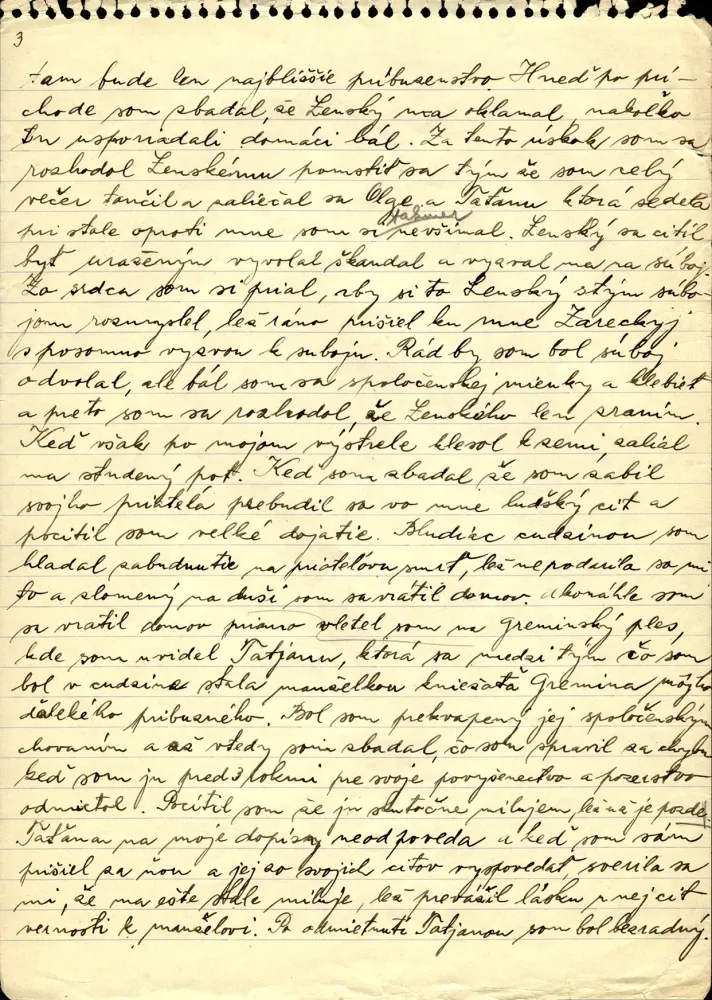 3
tam bude len najbližšie príbuzenstvo. Hneď po prí-
chode som zbadal, že Lenský ma oklamal, nakoľko
tu usporiadali domáci bál. Za tento úskok som sa
rozhodol Lenskému pomstiť sa tým že som celý
večer tančil a zaliečal sa Olge a Taťanu ktorá sedela
pri stole oproti mne som si takmer nevšímal. Lenský sa cítil
byť urazeným vyvolal škandal a vyzval ma na súboj.
Zo srdca som si prial, aby si to Lenský s tým súbo-
jom rozmyslel, lež ráno prišiel ku mne Zareckyj
s posomno vyzvou k suboju. Rád by som bol súboj
odvolal, ale bál som sa spoločenskej mienky a klebiet
a preto som sa rozhodol, že Lenského len zraním.
Keď však po mojom výstrele klesol k zemi, zalial
ma studený pot. Keď som zbadal že som zabil
svojho priateľa prebudil sa vo mne ľudský cit a
pocitil som velké dojatie. Bludiac cudzinou som
hladal zabudnutie na priateľovu smrť, lež nepodarilo sa mi
to a zlomený na duši som sa vrátil domov. Akonáhle som
sa vratil domov priamo vletel som na Greminský ples,
kde som uvidel Tatjanu, ktorá sa medzi tým čo som
bol v cudzine stala manželkou kniežaťa Gremina môjho
ďalekého pribuzného. Bol som prekvapený jej spoločenským
chovaním a až vtedy som zbadal, čo som spravil za chybu
keď som ju pred 3 rokmi pre svoje povyšenectvo a pozerstvo
odmietol. Pocítil som že ju skutočne milujem, lež už je pozde.
Taťana na moje dopisy neodpoveda a keď som sám
prišiel za ňou a jej zo svojich citov vyspovedať, sverila sa
mi, že ma ešte stále miluje, lež prevážil lásku v nej cit
vernosti k manželovi. Po odmietnutí Tatjanou som bol bezradný.